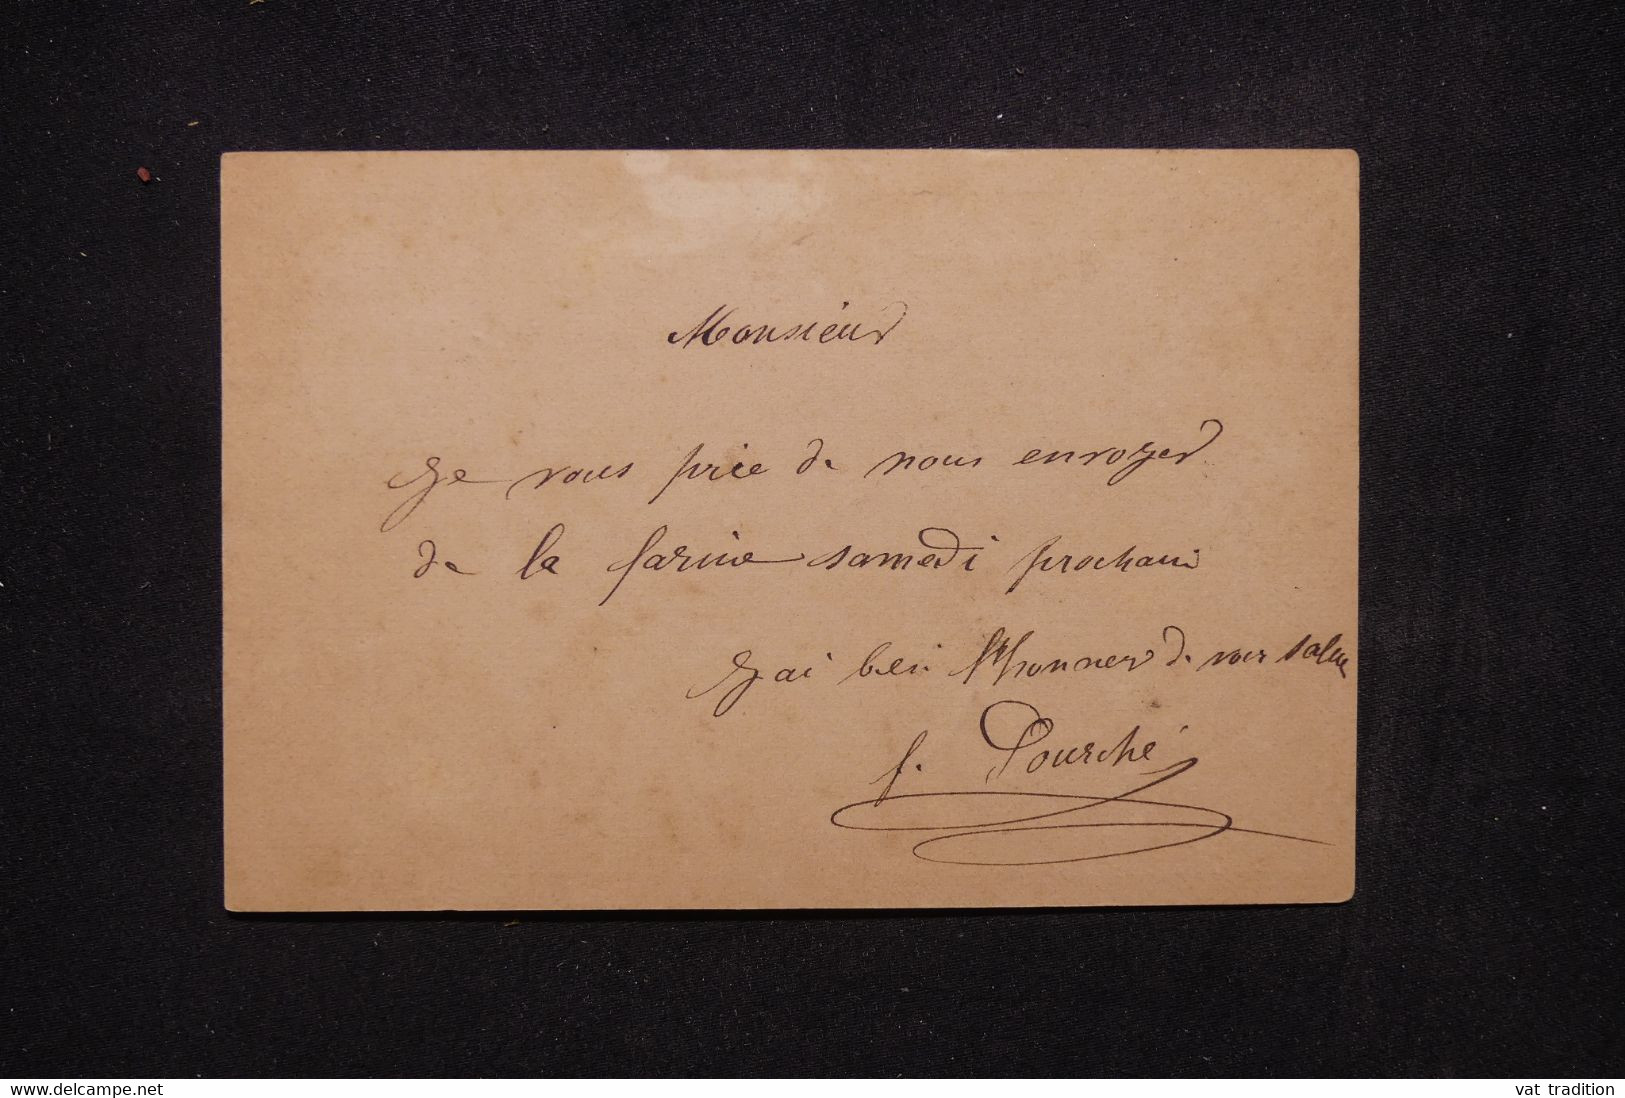 Monsieur
Je vous prie de nous envoyer
de la farine samedi prochain
J'ai bien l'honneur de vous saluer
f. Pourché
www.delcampe.net
vat tradition